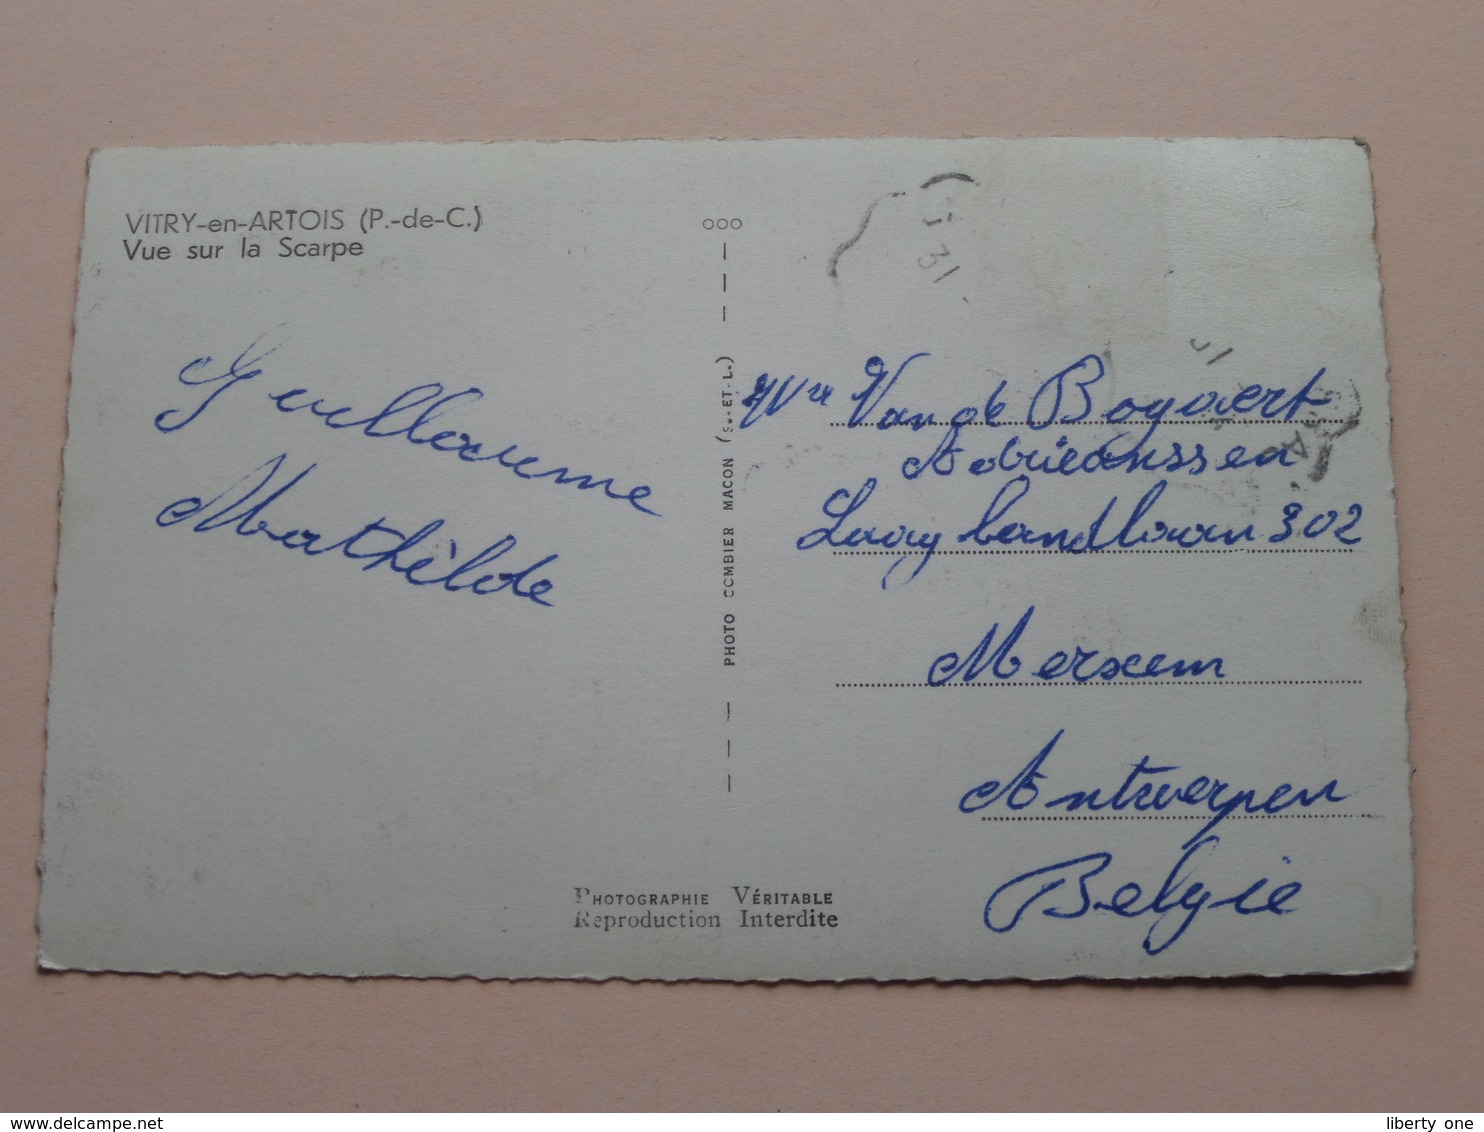 VITRY-en-ARTOIS (P.-de-C.)
Vue sur la Scarpe
Guillaume
Mathilde
PHOTO COMBIER MACON (S.-ET-L.)
PHOTOGRAPHIE VÉRITABLE
Reproduction Interdite
Van de Bogaert
Adrieanssen
Laaglandlaan 302
Merxem
Antwerpen
België
delcampe.net
liberty one